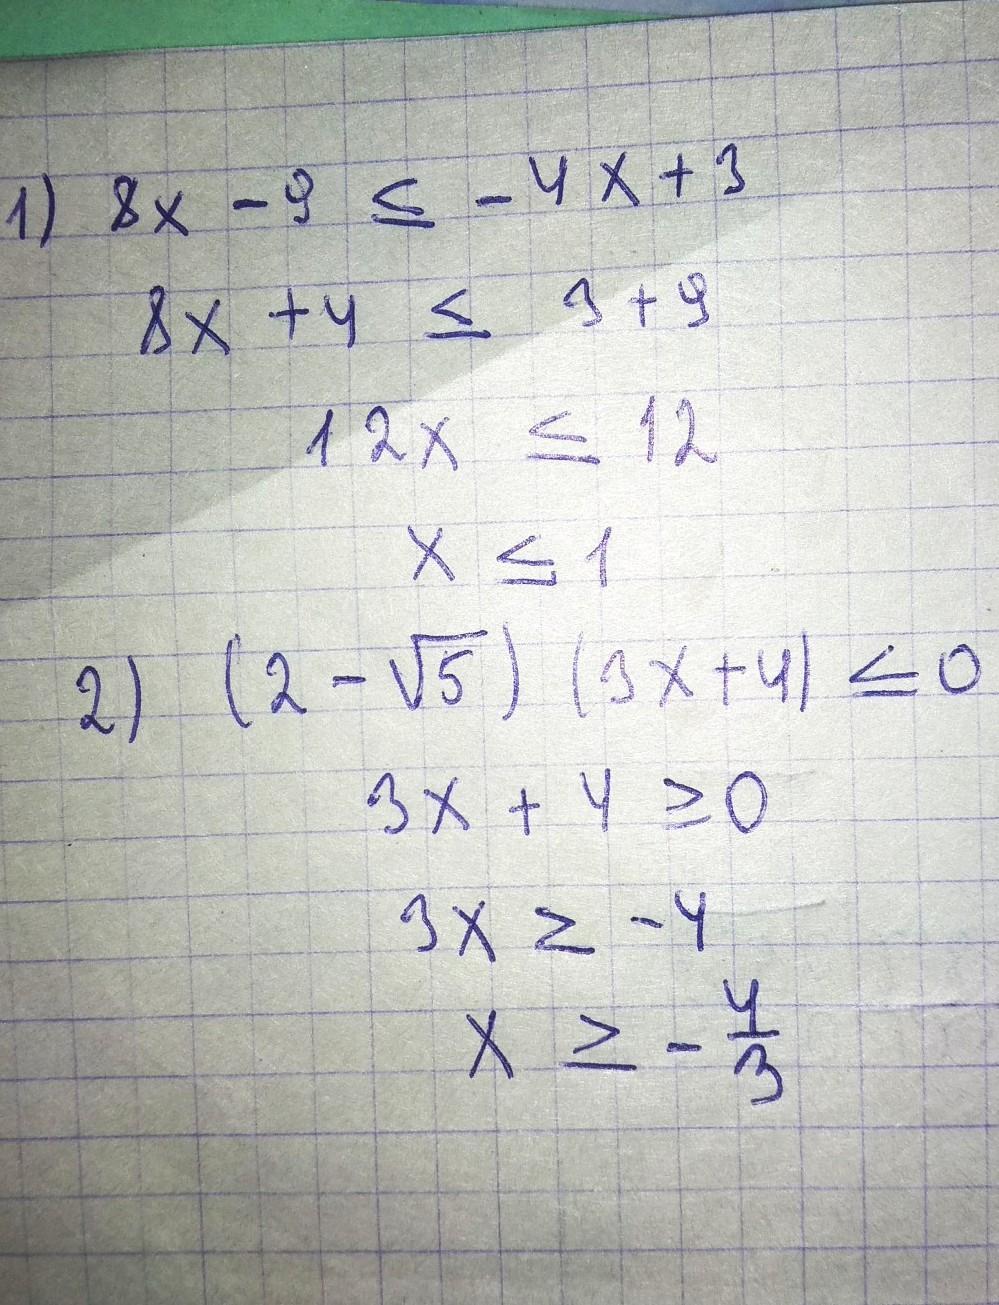 1) 8x - 9 ≤ -4x + 3
8x + 4 ≤ 3 + 9
12x ≤ 12
x ≤ 1
2) (2 - √5) (3x + 4) ≤ 0
3x + 4 ≥ 0
3x ≥ -4
x ≥ -4/3